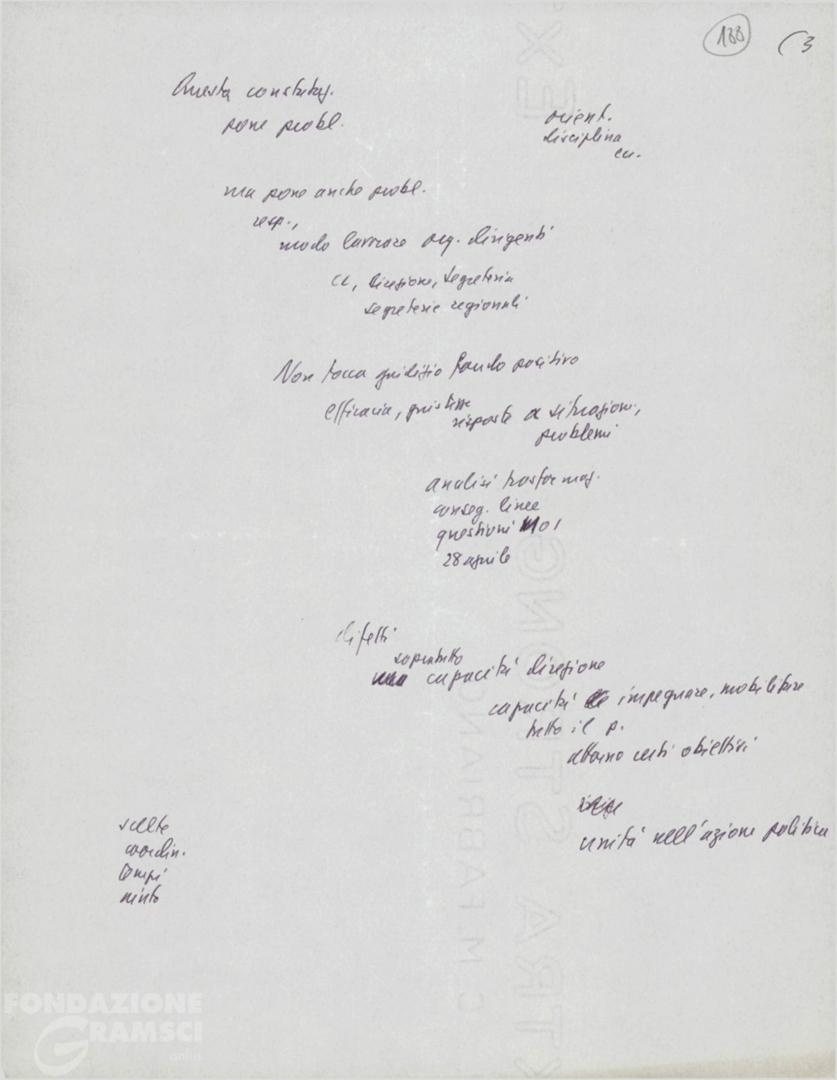 188
(3
Questa constataz.
pone probl.
orient.
disciplina
ecc.
ma pone anche probl.
resp.,
modo lavorare org. dirigenti
CC, Direzione, Segreteria
segreterie regionali
Non tocca giudizio fondo positivo
efficacia, giustezza
risposte a situazioni,
problemi
analisi trasformaz.
conseg. linee
questioni MOI
28 aprile
difetti
soprattutto
capacità direzione
capacità impegnare, mobilitare
tutto il p.
attorno certi obiettivi
unità nell'azione politica
scelte
coordin.
tempi
FONDAZIONE
GRAMSCI
onlus
EX
TRA STRONG
C. M. FABRIANO